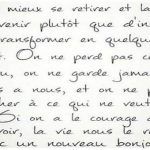 mieux se retirer et la
venir plutôt que d'in
transformer en quelque
t. On ne perd pas c
u, on ne garde jama
s a nous, et on ne
her à ce qui ne veut
Si on a le courage d
voir, la vie nous le r
c un nouveau bonjo